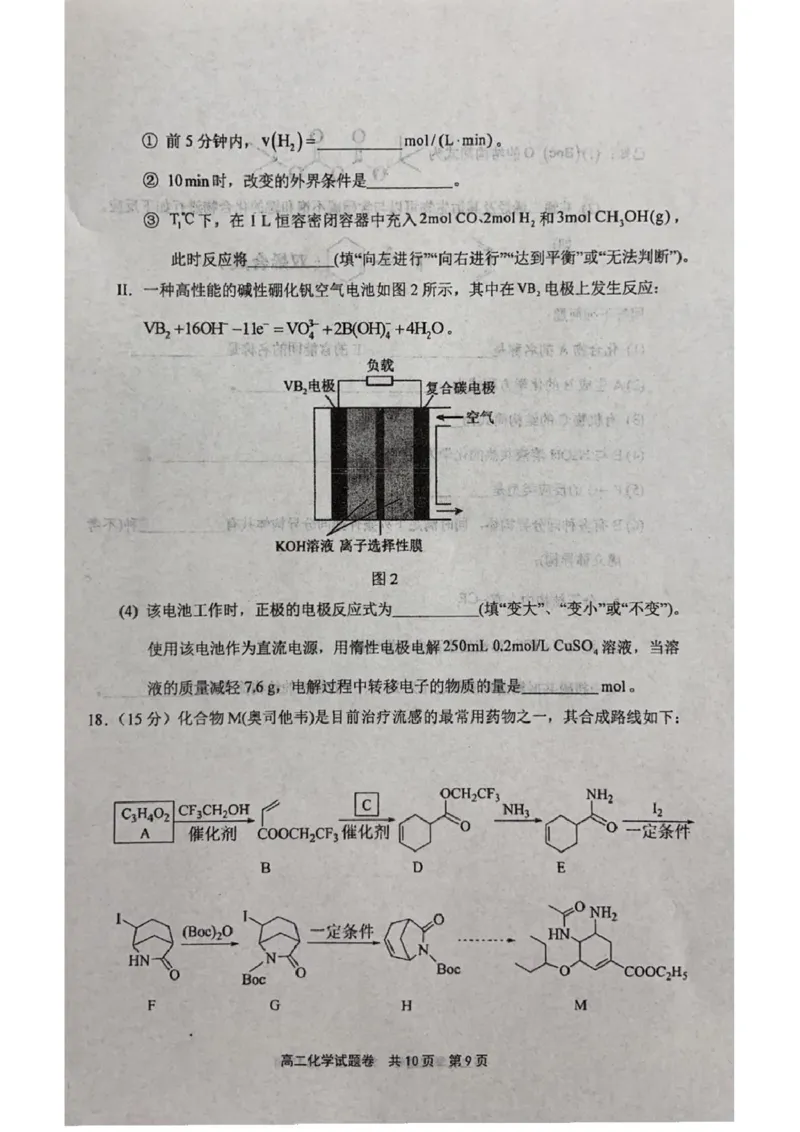 ① 前5分钟内，v(H₂)=________mol/(L·min)。
② 10min时，改变的外界条件是________。
③ T₁℃下，在1L恒容密闭容器中充入2mol CO、2mol H₂和3mol CH₃OH(g)，
此时反应将________(填“向左进行”“向右进行”“达到平衡”或“无法判断”)。
II. 一种高性能的碱性硼化钒空气电池如图2所示，其中在VB₂电极上发生反应：
VB₂+16OH⁻-11e⁻=VO₄³⁻+2B(OH)₄⁻+4H₂O。
负载
VB₂电极 复合碳电极
空气
KOH溶液 离子选择性膜
图2
(4) 该电池工作时，正极的电极反应式为________(填“变大”、“变小”或“不变”)。
使用该电池作为直流电源，用惰性电极电解250mL 0.2mol/L CuSO₄溶液，当溶
液的质量减轻7.6g，电解过程中转移电子的物质的量是________mol。
18.（15分）化合物M(奥司他韦)是目前治疗流感的最常用药物之一，其合成路线如下：
C₃H₄O₂ A CF₃CH₂OH 催化剂 COOCH₂CF₃ C 催化剂 OCH₂CF₃ O NH₃ NH₂ O I₂ 一定条件
B D E
I HN O (Boc)₂O I N Boc O 一定条件 O N Boc O HN NH₂ O COOC₂H₅
F G H M
高二化学试题卷 共10页 第9页